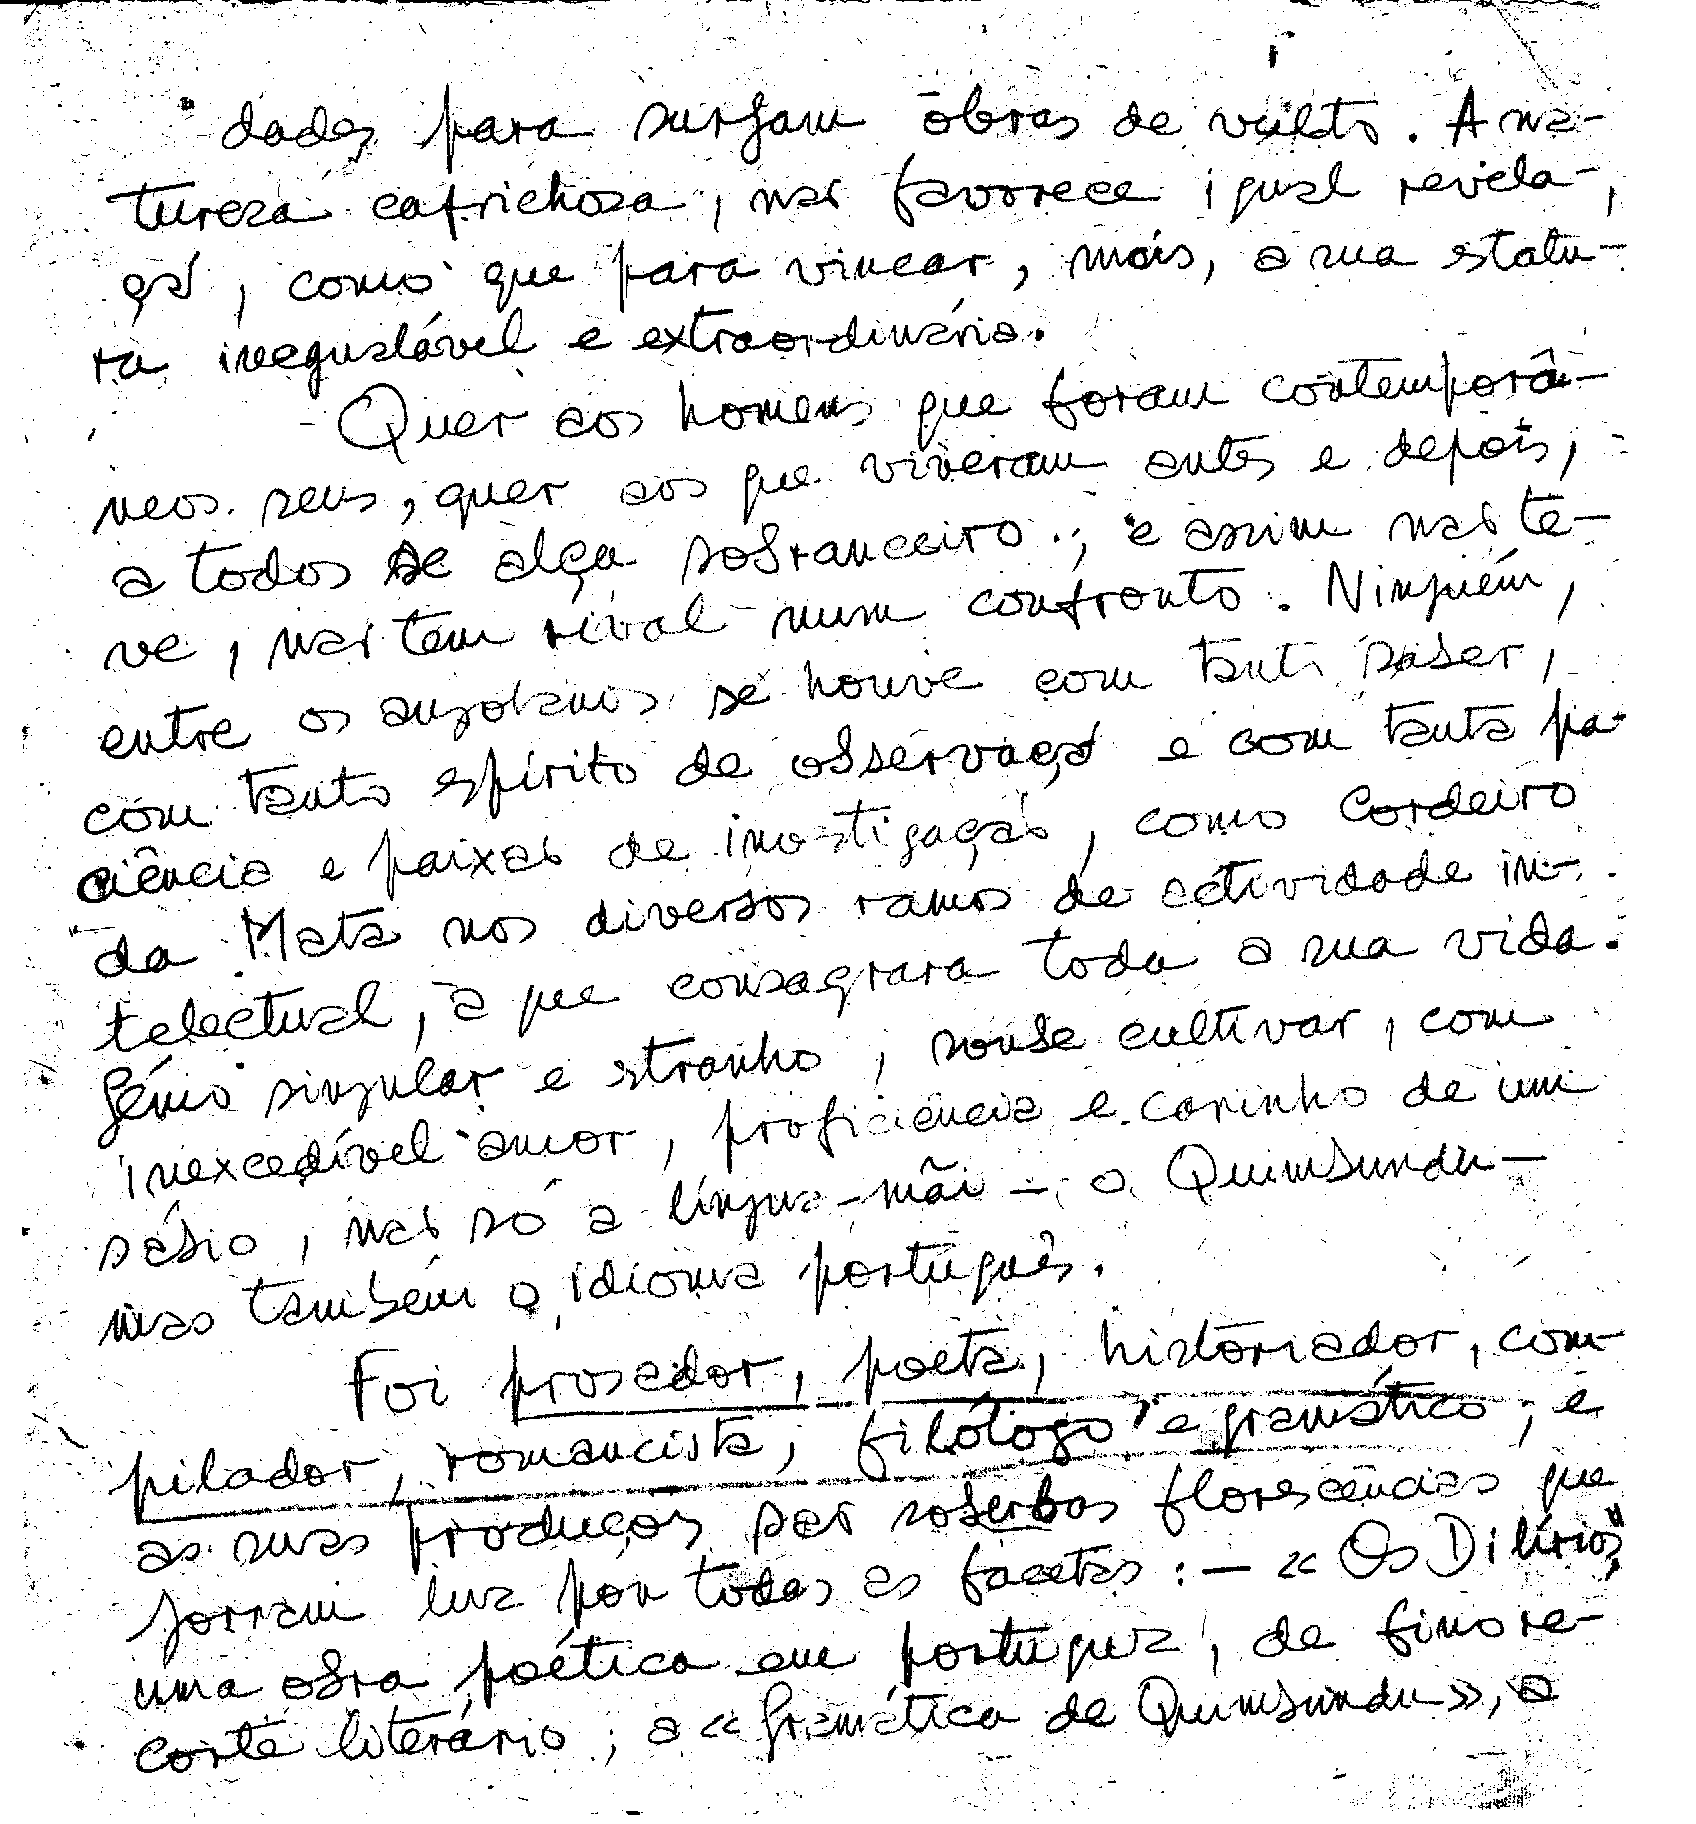 dades para surjam obras de vulto. A na-
tureza caprichosa, não favorece igual revela-
ção, como que para vincar, mais, a sua estatu-
ra inegualável e extraordinária.
Quer aos homens que foram contemporâ-
neos seus, quer aos que viveram antes e depois,
a todos se alça sobranceiro; e assim não te-
ve, não tem rival num confronto. Ninguém,
entre os angolanos se houve com tanto saber,
com tanto espírito de observação e com tanta pa-
ciência e paixão de investigação, como Cordeiro
da Mata nos diversos ramos de actividade in-
telectual, a que consagrara toda a sua vida.
Génio singular e estranho, soube cultivar, com
inexcedível amor, proficiência e carinho de um
sábio, não só a língua-mãi - o Quimbundu -
mas também o idioma português.
Foi prosador, poeta, historiador, com-
pilador, romancista, filólogo e gramático; e
as suas produções são soberbas florescências que
jorram luz por todas as facetas: - « Os Dilírios",
uma obra poética em portuguez, de fino re-
corte literário; a « Gramática de Quimbundu », a